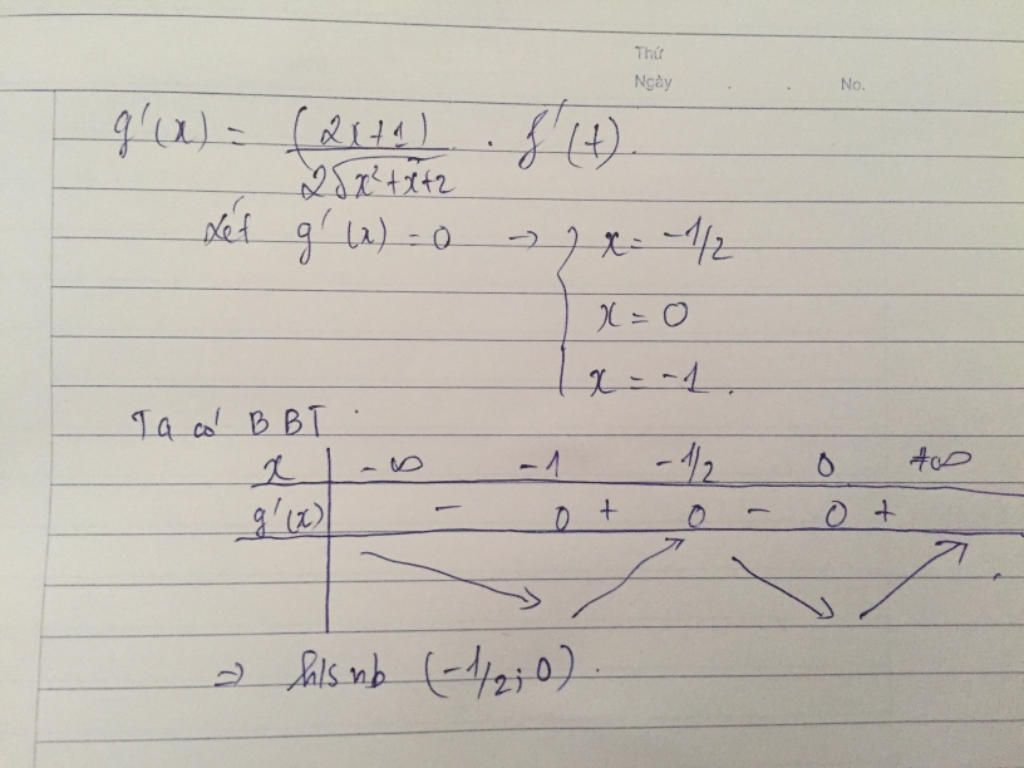 Thứ
Ngày . . No.
g'(x) = (2x+1) / 2√x²+x+2 . f'(t).
Xét g'(x) = 0 → { x = -1/2
x = 0
x = -1.
Ta có BBT
x | -∞ -1 -1/2 0 +∞
g'(x) | - 0 + 0 - 0 +
⇒ h/s nb (-1/2; 0).